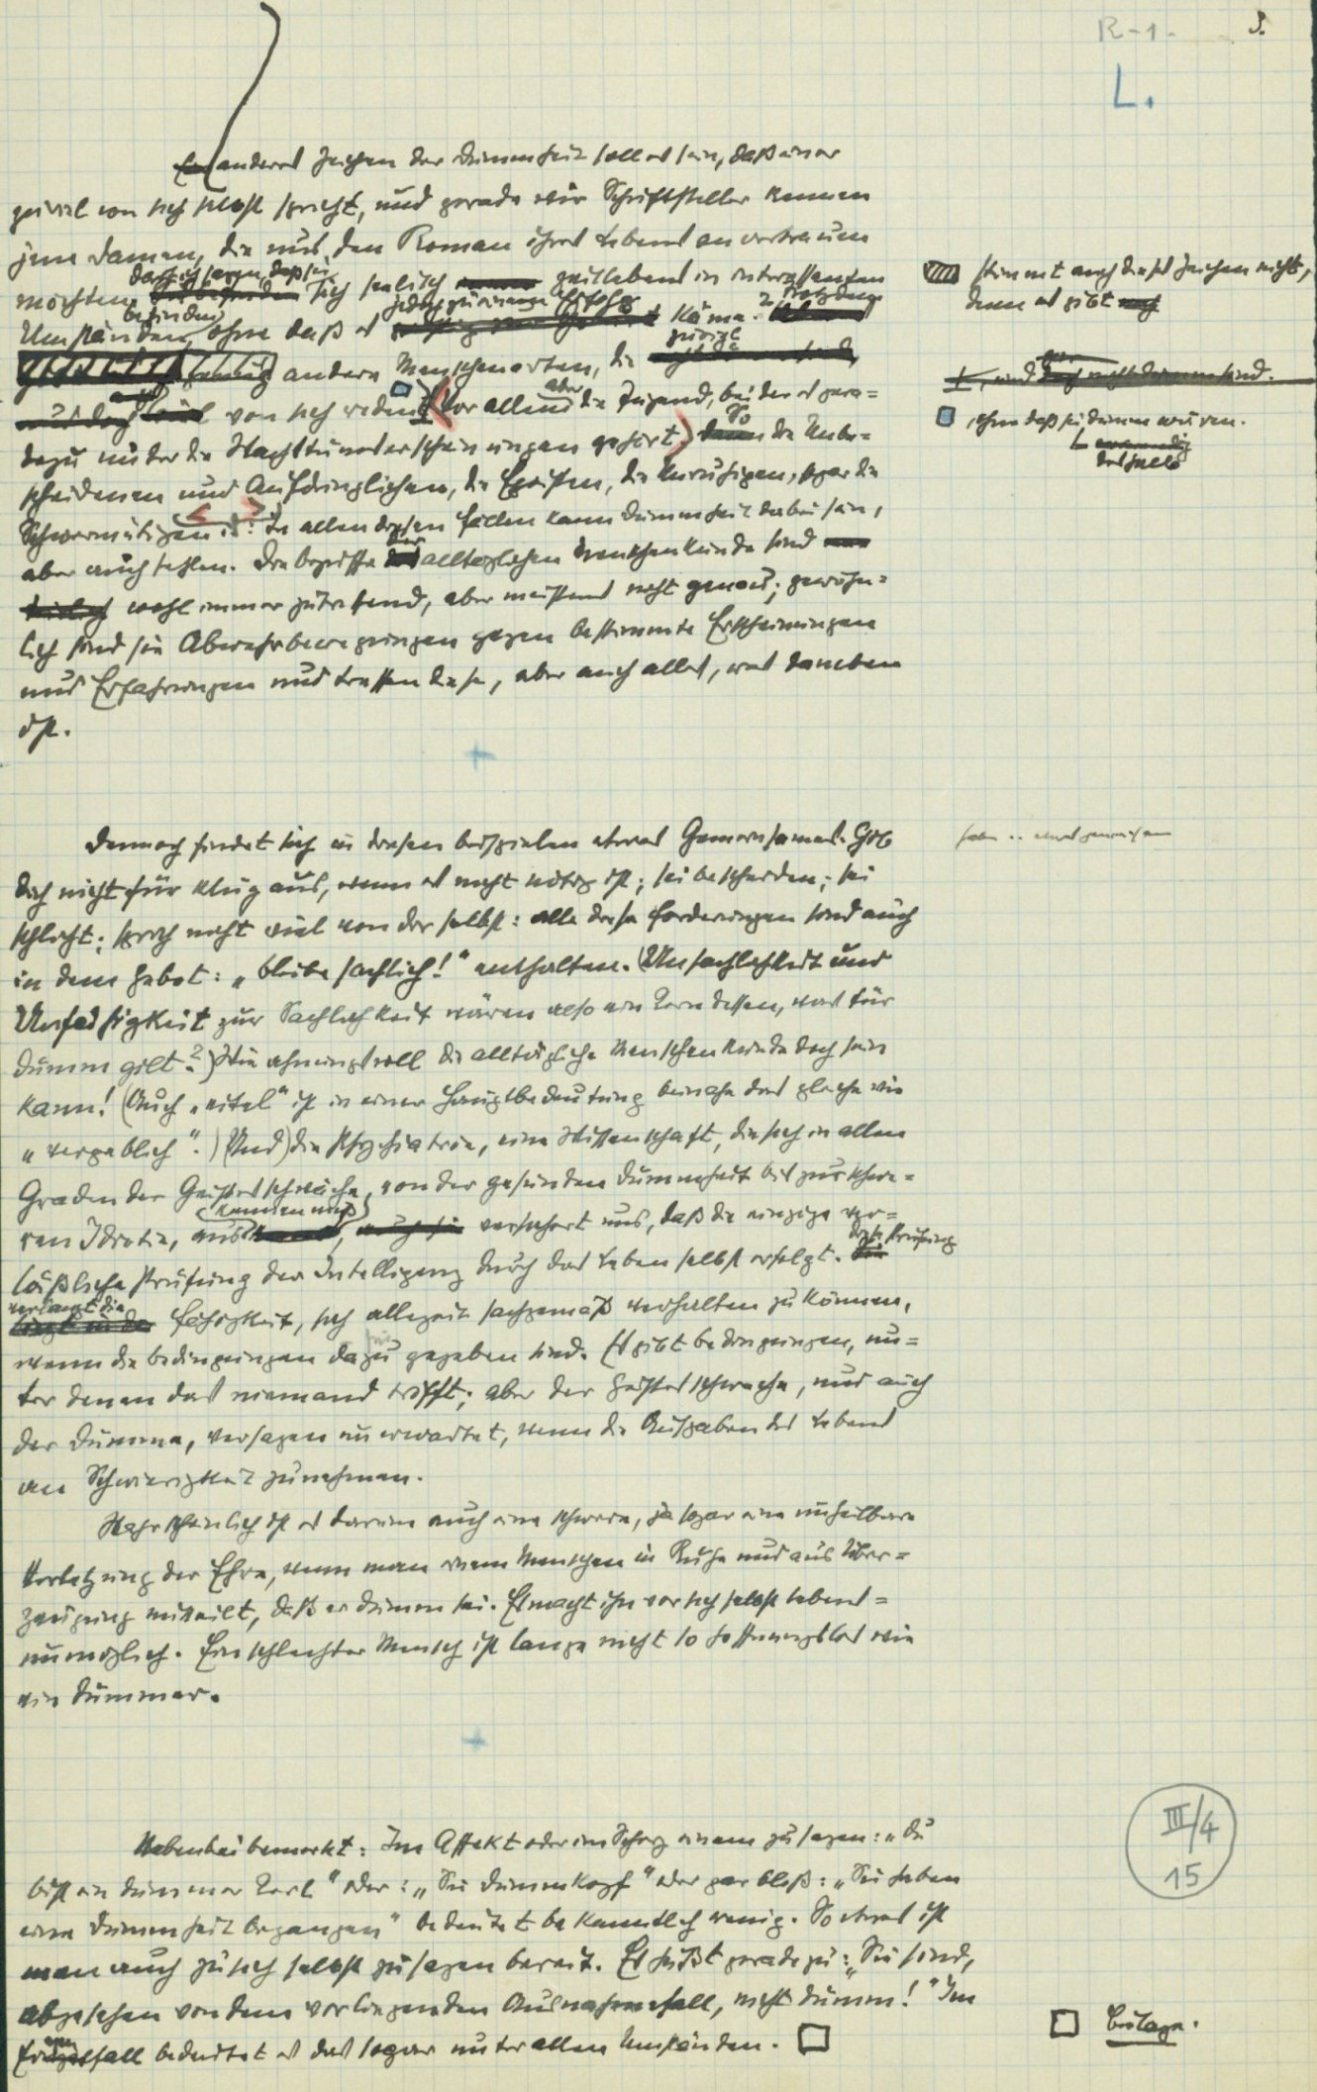 R-1. 3.
L.
Ein anderes Zeichen der Dummheit soll es sein, daß einer
zuviel von sich selbst spricht, und gerade wir Schriftsteller kennen
jene Damen, die uns den Roman ihres Lebens anvertrauen
möchten, daß sie sich seelisch zeitlebens in interessanten
Umständen befinden, ohne daß es jedoch zu einem Erfolg käme. Trotzdem
stimmt auch dieses Zeichen nicht,
denn es gibt
andere Menschenarten, die zuviel
von sich reden vor allem aber die Jugend, bei der es gera=
, ohne daß sie dumm wären.
dezu unter die Wachstumserscheinungen gehört) So die Unbe=
scheidenen und Aufdringlichen, die Egoisten, die Unruhigen, sogar die
Schwermütigen: In allen diesen Fällen kann Dummheit dabei sein,
aber auch fehlen. Die Begriffe der alltäglichen Menschenkunde sind
wohl immer zutreffend, aber meistens nicht genau; gewöhn=
lich sind sie Abwehrbewegungen gegen bestimmte Erscheinungen
und Erfahrungen und treffen diese, aber auch alles, was daneben
ist.
Dennoch findet sich in diesen Beispielen etwas Gemeinsames. Gib
dich nicht für klug aus, wenn es nicht nötig ist; sei bescheiden; sei
schlicht; sprich nicht viel von dir selbst: alle diese Forderungen sind auch
in dem Gebot: „Bleibe sachlich!" enthalten. (Unsachlichkeit und
Unfähigkeit zur Sachlichkeit wären also ein Kern dessen, was für
dumm gilt?) Wie ahnungsvoll die alltägliche Menschenkunde doch sein
kann! (Auch „eitel" ist in einer Hauptbedeutung beinahe das gleiche wie
„vergeblich".) (Und) die Psychiatrie, eine Wissenschaft, die sich in allen
Graden der Geistesschwäche, von der gesunden Dummheit bis zur schwe=
ren Idiotie, auskennen muß, versichert uns, daß die einzige ver=
läßliche Prüfung der Intelligenz durch das Leben selbst erfolgt. Diese Prüfung
verlangt die Fähigkeit, sich allezeit sachgemäß verhalten zu können,
wenn die Bedingungen dazu gegeben sind. Es gibt Bedingungen, un=
ter denen das niemand trifft; aber der Geistesschwache, und auch
der Dumme, versagen unerwartet, wenn die Aufgaben des Lebens
an Schwierigkeit zunehmen.
Wahrscheinlich ist es darum auch eine schwere, ja sogar eine unheilbare
Verletzung der Ehre, wenn man einem Menschen in Ruhe und aus Über=
zeugung mitteilt, daß er dumm sei. Es macht ihn vor sich selbst lebens=
unmöglich. Ein schlechter Mensch ist lange nicht so hoffnungslos wie
ein dummer.
III/4
15
Nebenbei bemerkt: Im Affekt oder im Scherz einem zu sagen: „Du
bist ein dummer Kerl" oder: „Sie Dummkopf" oder gar bloß: „Sie haben
eine Dummheit begangen" bedeutet bekanntlich wenig. So etwas ist
man auch zu sich selbst zu sagen bereit. Es heißt geradezu: „Sie sind,
abgesehen von dem vorliegenden Ausnahmefall, nicht dumm!" Im
bedeutet es das sogar unter allen Umständen.
Beilage.